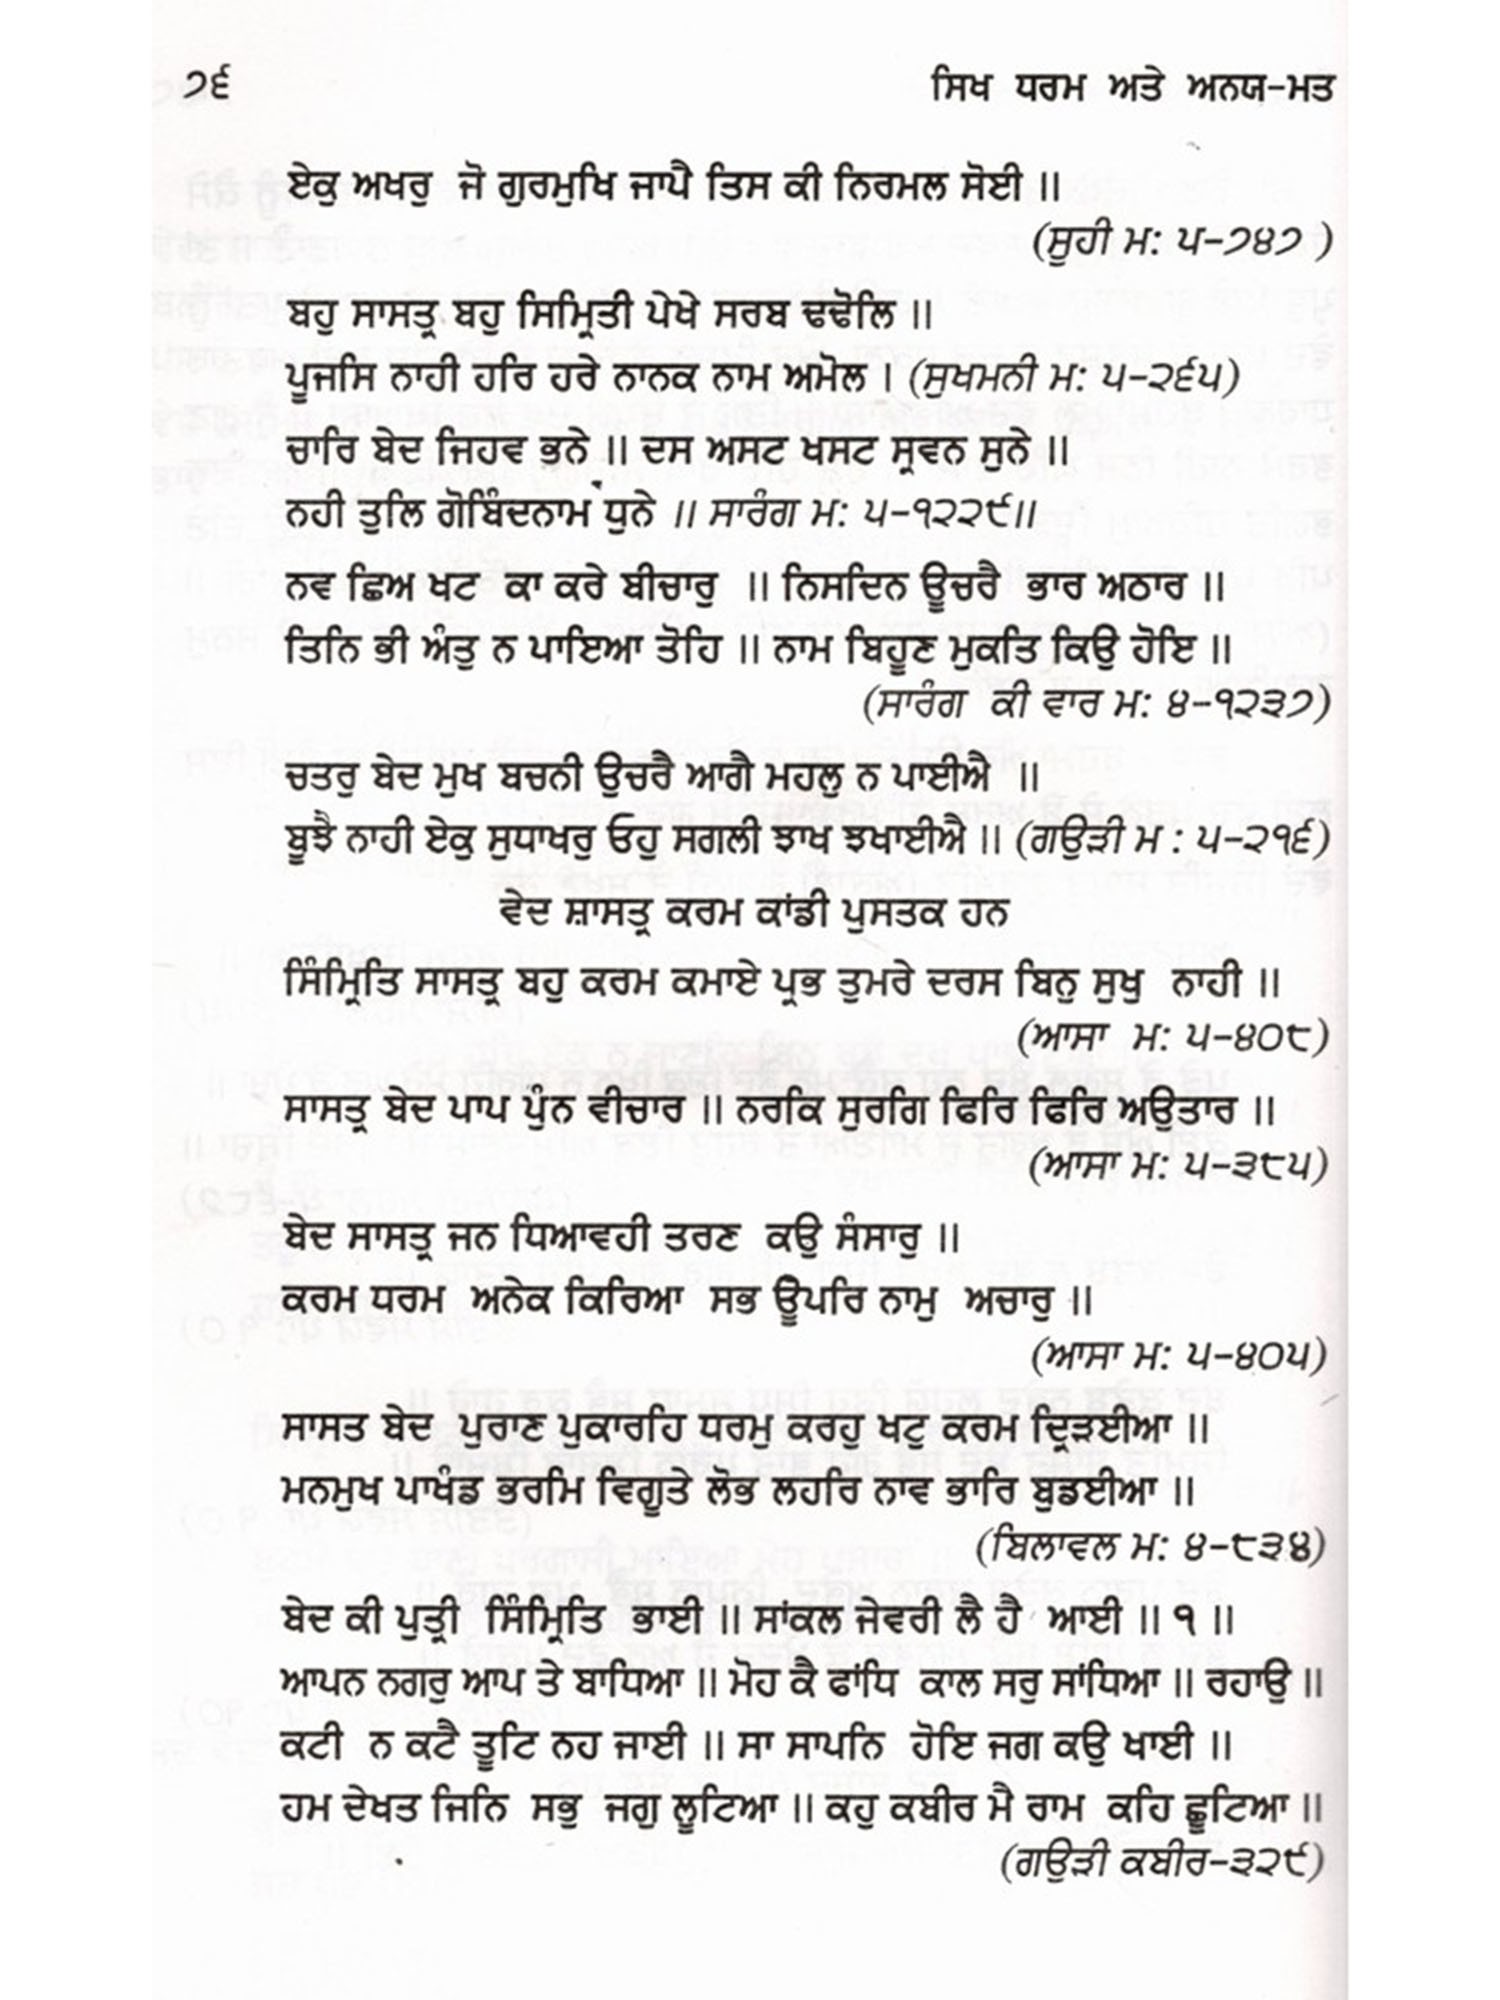 ੭੬ ਸਿਖ ਧਰਮ ਅਤੇ ਅਨਯ-ਮਤ
ਏਕੁ ਅਖਰੁ ਜੋ ਗੁਰਮੁਖਿ ਜਾਪੈ ਤਿਸ ਕੀ ਨਿਰਮਲ ਸੋਈ ॥
(ਸੂਹੀ ਮ: ੫-੭੪੭ )
ਬਹੁ ਸਾਸਤ੍ਰ ਬਹੁ ਸਿਮ੍ਰਿਤੀ ਪੇਖੇ ਸਰਬ ਢਢੋਲਿ ॥
ਪੂਜਸਿ ਨਾਹੀ ਹਰਿ ਹਰੇ ਨਾਨਕ ਨਾਮ ਅਮੋਲ । (ਸੁਖਮਨੀ ਮ: ੫-੨੬੫)
ਚਾਰਿ ਬੇਦ ਜਿਹਵ ਭਨੇ ॥ ਦਸ ਅਸਟ ਖਸਟ ਸ੍ਰਵਨ ਸੁਨੇ ॥
ਨਹੀ ਤੁਲਿ ਗੋਬਿੰਦਨਾਮ ਧੁਨੇ ॥ ਸਾਰੰਗ ਮ: ੫-੧੨੨੯॥
ਨਵ ਛਿਅ ਖਟ ਕਾ ਕਰੇ ਬੀਚਾਰੁ ॥ ਨਿਸਦਿਨ ਊਚਰੈ ਭਾਰ ਅਠਾਰ ॥
ਤਿਨਿ ਭੀ ਅੰਤੁ ਨ ਪਾਇਆ ਤੋਹਿ ॥ ਨਾਮ ਬਿਹੂਣ ਮੁਕਤਿ ਕਿਉ ਹੋਇ ॥
(ਸਾਰੰਗ ਕੀ ਵਾਰ ਮ: ੪-੧੨੩੭)
ਚਤਰੁ ਬੇਦ ਮੁਖ ਬਚਨੀ ਉਚਰੈ ਆਗੈ ਮਹਲੁ ਨ ਪਾਈਐ ॥
ਬੂਝੈ ਨਾਹੀ ਏਕੁ ਸੁਧਾਖਰੁ ਓਹੁ ਸਗਲੀ ਝਾਖ ਝਖਾਈਐ ॥ (ਗਉੜੀ ਮ : ੫-੨੧੬)
ਵੇਦ ਸ਼ਾਸਤ੍ਰ ਕਰਮ ਕਾਂਡੀ ਪੁਸਤਕ ਹਨ
ਸਿੰਮ੍ਰਿਤਿ ਸਾਸਤ੍ਰ ਬਹੁ ਕਰਮ ਕਮਾਏ ਪ੍ਰਭ ਤੁਮਰੇ ਦਰਸ ਬਿਨੁ ਸੁਖੁ ਨਾਹੀ ॥
(ਆਸਾ ਮ: ੫-੪੦੮)
ਸਾਸਤ੍ਰ ਬੇਦ ਪਾਪ ਪੁੰਨ ਵੀਚਾਰ ॥ ਨਰਕਿ ਸੁਰਗਿ ਫਿਰਿ ਫਿਰਿ ਅਉਤਾਰ ॥
(ਆਸਾ ਮ: ੫-੩੮੫)
ਬੇਦ ਸਾਸਤ੍ਰ ਜਨ ਧਿਆਵਹੀ ਤਰਣ ਕਉ ਸੰਸਾਰੁ ॥
ਕਰਮ ਧਰਮ ਅਨੇਕ ਕਿਰਿਆ ਸਭ ਊਪਰਿ ਨਾਮੁ ਅਚਾਰੁ ॥
(ਆਸਾ ਮ: ੫-੪੦੫)
ਸਾਸਤ ਬੇਦ ਪੁਰਾਣ ਪੁਕਾਰਹਿ ਧਰਮੁ ਕਰਹੁ ਖਟੁ ਕਰਮ ਦ੍ਰਿੜਈਆ ॥
ਮਨਮੁਖ ਪਾਖੰਡ ਭਰਮਿ ਵਿਗੂਤੇ ਲੋਭ ਲਹਰਿ ਨਾਵ ਭਾਰਿ ਬੁਡਈਆ ॥
(ਬਿਲਾਵਲ ਮ: ੪-੮੩੪)
ਬੇਦ ਕੀ ਪੁਤ੍ਰੀ ਸਿੰਮ੍ਰਿਤਿ ਭਾਈ ॥ ਸਾਂਕਲ ਜੇਵਰੀ ਲੈ ਹੈ ਆਈ ॥ ੧ ॥
ਆਪਨ ਨਗਰੁ ਆਪ ਤੇ ਬਾਧਿਆ ॥ ਮੋਹ ਕੈ ਫਾਂਧਿ ਕਾਲ ਸਰੁ ਸਾਂਧਿਆ ॥ ਰਹਾਉ ॥
ਕਟੀ ਨ ਕਟੈ ਤੂਟਿ ਨਹ ਜਾਈ ॥ ਸਾ ਸਾਪਨਿ ਹੋਇ ਜਗ ਕਉ ਖਾਈ ॥
ਹਮ ਦੇਖਤ ਜਿਨਿ ਸਭੁ ਜਗੁ ਲੂਟਿਆ ॥ ਕਹੁ ਕਬੀਰ ਮੈ ਰਾਮ ਕਹਿ ਛੂਟਿਆ ॥
(ਗਉੜੀ ਕਬੀਰ-੩੨੯)